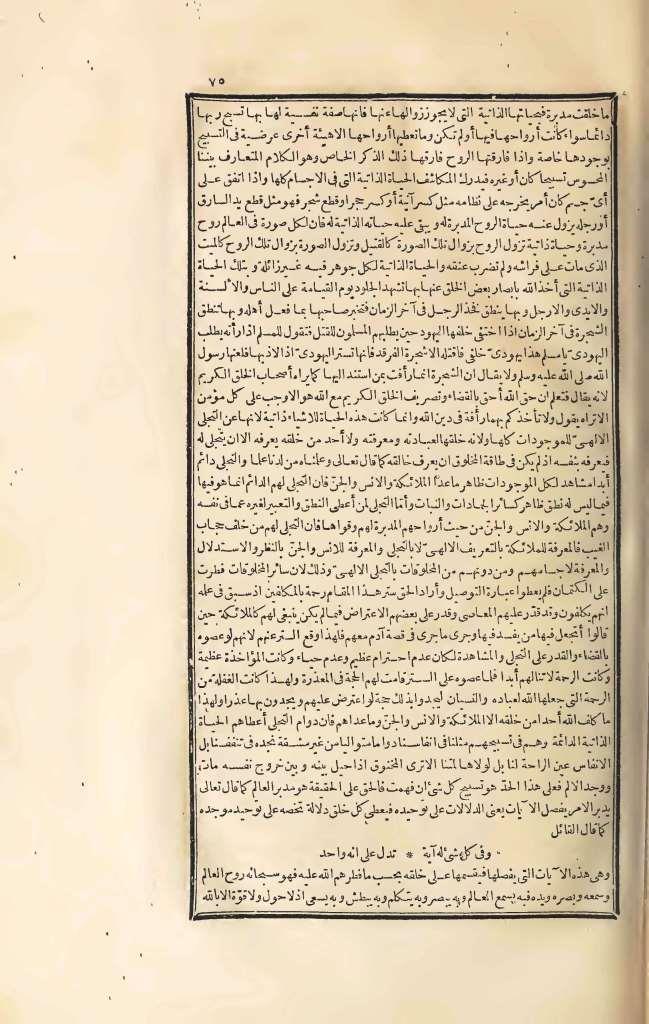 ٧٥
ما خلقت مدبرة فحياتها الذاتية التى لا يجوز زوالها عنها فانها صفة نفسية لها بها تسبح ربها
دائما سواء كانت أرواحها فيها أو لم تكن وما تعطيها أرواحها الاهيئة أخرى عرضية فى التسبيح
بوجودها خاصة واذا فارقتها الروح فارقها ذلك الذكر الخاص وهو الكلام المتعارف بيننا
المحسوس تسبيحا كان أو غيره فيدرك المكاشف الحياة الذاتية التى فى الاجسام كلها واذا اتفق على
أى جسم كان أمر يخرجه على نظامه مثل كسر آنية أو كسر حجر أو قطع شجر فهو مثل قطع يد السارق
أو رجله يزول عنه حياة الروح المدبرة له ويبقى عليه حياته الذاتية له فان لكل صورة فى العالم روح
مدبرة وحياة ذاتية تزول الروح بزوال تلك الصورة كالقتيل وتزول الصورة بزوال تلك الروح كالميت
الذى مات على فراشه ولم تضرب عنقه والحياة الذاتية لكل جوهر فيه غير زائلة وبتلك الحياة
الذاتية التى أخذ الله بابصار بعض الخلق عنها بها تشهد الجلود يوم القيامة على الناس والالسنة
والايدى والارجل وبها ينطق فخذ الرجل فى آخر الزمان فتخبر صاحبها بما فعل أهله وبها تنطق
الشجرة فى آخر الزمان اذا اختفى خلفها اليهود حين يطلبهم المسلمون للقتل فتقول للمسلم اذا رأته يطلب
اليهودى يا مسلم هذا يهودى خلفى فاقتله الا شجرة الغرقد فانها تستر اليهودى اذا لاذ بها فلعنها رسول
الله صلى الله عليه وسلم ولا يقال ان الشجرة انما رأفت بمن استند اليها كما يراه أصحاب الخلق الكريم
لانه يقال فتعلم ان حق الله أحق بالقضاء وتصريف الخلق الكريم مع الله هو الاوجب على كل مؤمن
الا تراه يقول ولا تأخذكم بهما رأفة فى دين الله وانما كانت هذه الحياة للاشياء ذاتية لانها عن التجلى
الالهى للموجودات كلها ولانه خلقها لعبادته ومعرفته ولا أحد من خلقه يعرفه الا ان يتجلى له
فيعرفه بنفسه اذ لم يكن فى طاقة المخلوق ان يعرف خالقه كما قال تعالى وعلمناه من لدنا علما والتجلى دائم
أبدا مشاهد لكل الموجودات ظاهر ما عدا الملائكة والانس والجن فان التجلى لهم الدائم انما هو فيها
فيما ليس له نطق ظاهر كسائر الجمادات والنبات وأما التجلى لمن أعطى النطق والتعبير لغيره عما فى نفسه
وهم الملائكة والانس والجن من حيث أرواحهم المدبرة لهم وقواها فان التجلى لهم من خلف حجاب
الغيب فالمعرفة للملائكة بالتعريف الالهى لا بالتجلى والمعرفة للانس والجن بالنظر والاستدلال
والمعرفة لاجسامهم ومن دونهم من المخلوقات بالتجلى الالهى وذلك لان سائر المخلوقات فطرت
على الكتمان فلم يعطوا عبارة التوصيل وأراد الحق ستر هذا المقام رحمة بالمكلفين اذ سبق فى علمه
انهم يكلفون وقد قدر عليهم المعاصى وقدر على بعضهم الاعتراض فيما لم يكن ينبغى لهم كالملائكة حين
قالوا أتجعل فيها من يفسد فيها وجرى ما جرى فى قصة آدم معهم فلهذا وقع الستر عنهم لانهم لو عصوه
بالقضاء والقدر على التجلى والمشاهدة لكان عدم احترام عظيم وعدم حياء وكانت المؤاخذة عظيمة
وكانت الرحمة لا تنالهم أبدا فلما عصوه على الستر قامت لهم الحجة فى المعذرة ولهذا كانت الغفلة من
الرحمة التى جعلها الله لعباده والنسيان ليجدوا بذلك حجة لو اعترض عليهم ويجدون بها عذرا ولهذا
ما كلف الله أحدا من خلقه الا الملائكة والانس والجن وما عداهم فان دوام التجلى أعطاهم الحياة
الذاتية الدائمة وهم فى تسبيحهم مثلنا فى أنفاسنا دواما متواليا من غير مشقة نجده فى تنفسنا بل
الانفاس عين الراحة لنا بل لولاها لمتنا الا ترى المخنوق اذا حيل بينه وبين خروج نفسه مات
ووجد الالم فعلى هذا الحد هو تسبيح كل شئ ان فهمت فالحق على الحقيقة هو مدبر العالم كما قال تعالى
يدبر الامر يفصل الآيات يعنى الدلالات على توحيده فيعطى كل خلق دلالة تخصه على توحيد موجده
كما قال القائل
وفى كل شئ له آية * تدل على انه واحد
وهى هذه الآيات التى يفصلها فيقسمها على خلقه بحسب ما فطرهم الله عليه فهو سبحانه روح العالم
وسمعه وبصره ويده فبه يسمع العالم وبه يبصر وبه يتكلم وبه يبطش وبه يسعى اذ لا حول ولا قوة الا بالله